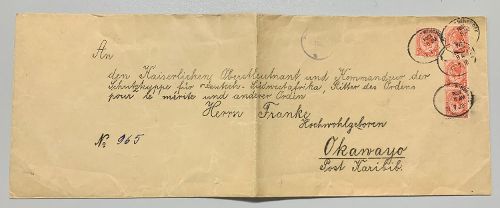 An
den Kaiserlichen Oberstleutnant und Kommandeur der
Schutztruppe für Deutsch-Südwestafrika, Ritter des Ordens
pour le mérite und anderer Orden
Herrn Franke
Hochwohlgeboren
№ 965
Okawayo
Post Karibib.